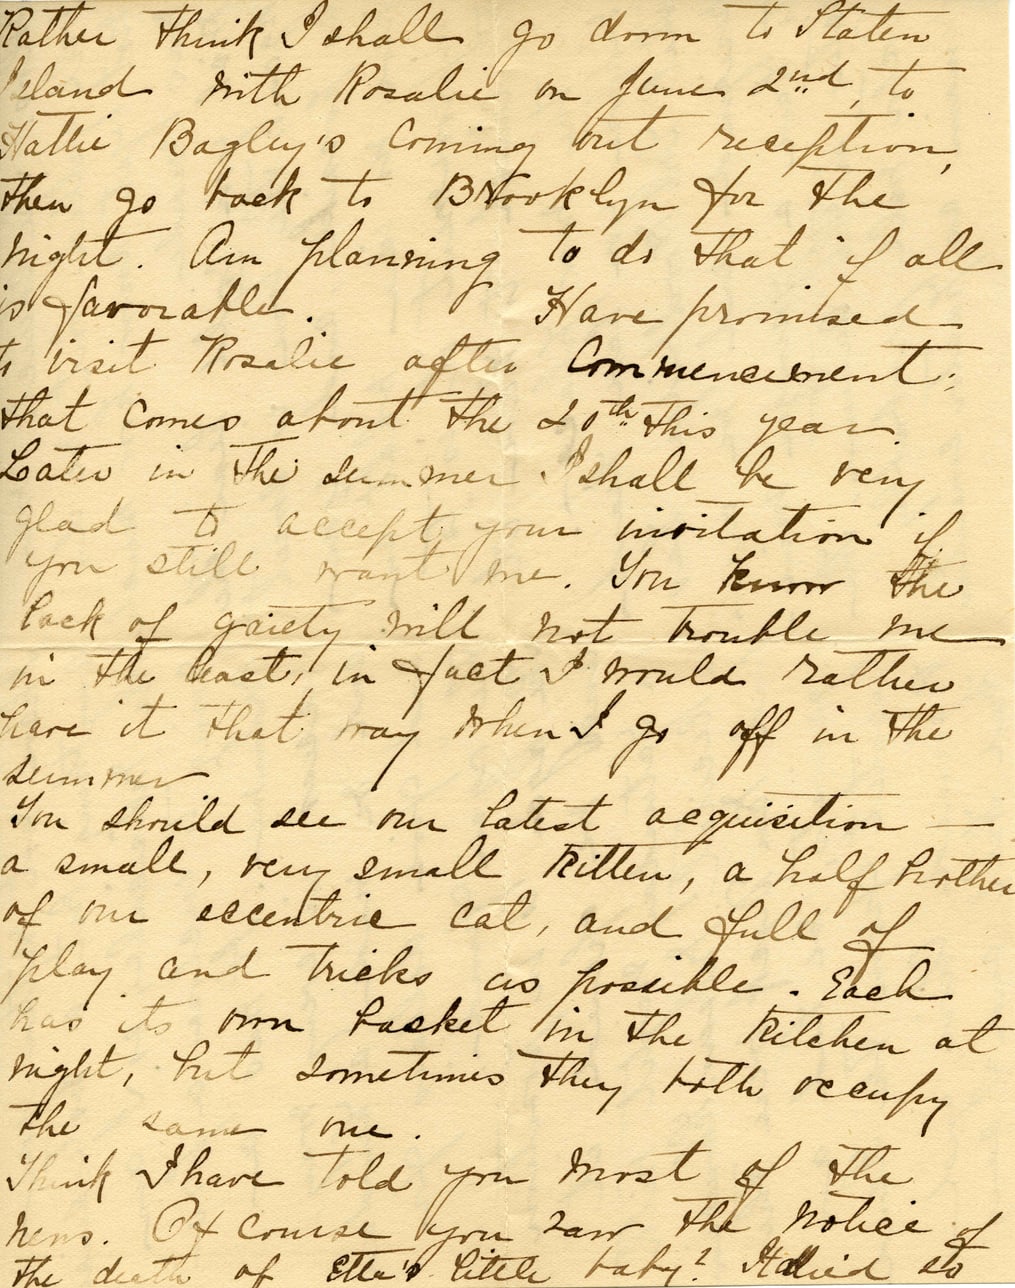 Rather think I shall go down to Staten
Island with Rosalie on June 2nd, to
Hattie Bagley's coming out reception,
then go back to Brooklyn for the
night. Am planning to do that if all
is favorable. Have promised
to visit Rosalie after Commencement;
that comes about the 20th this year.
Later in the summer I shall be very
glad to accept your invitation if
you still want me. You know the
lack of gaiety will not trouble me
in the least, in fact I would rather
have it that way when I go off in the
summer
You should see our latest acquisition —
a small, very small kitten, a half brother
of our eccentric cat, and full of
play and tricks as possible. Each
has its own basket in the kitchen at
night, but sometimes they both occupy
the same one.
Think I have told you most of the
news. Of course you saw the notice of
the death of Etta's little baby? It died so